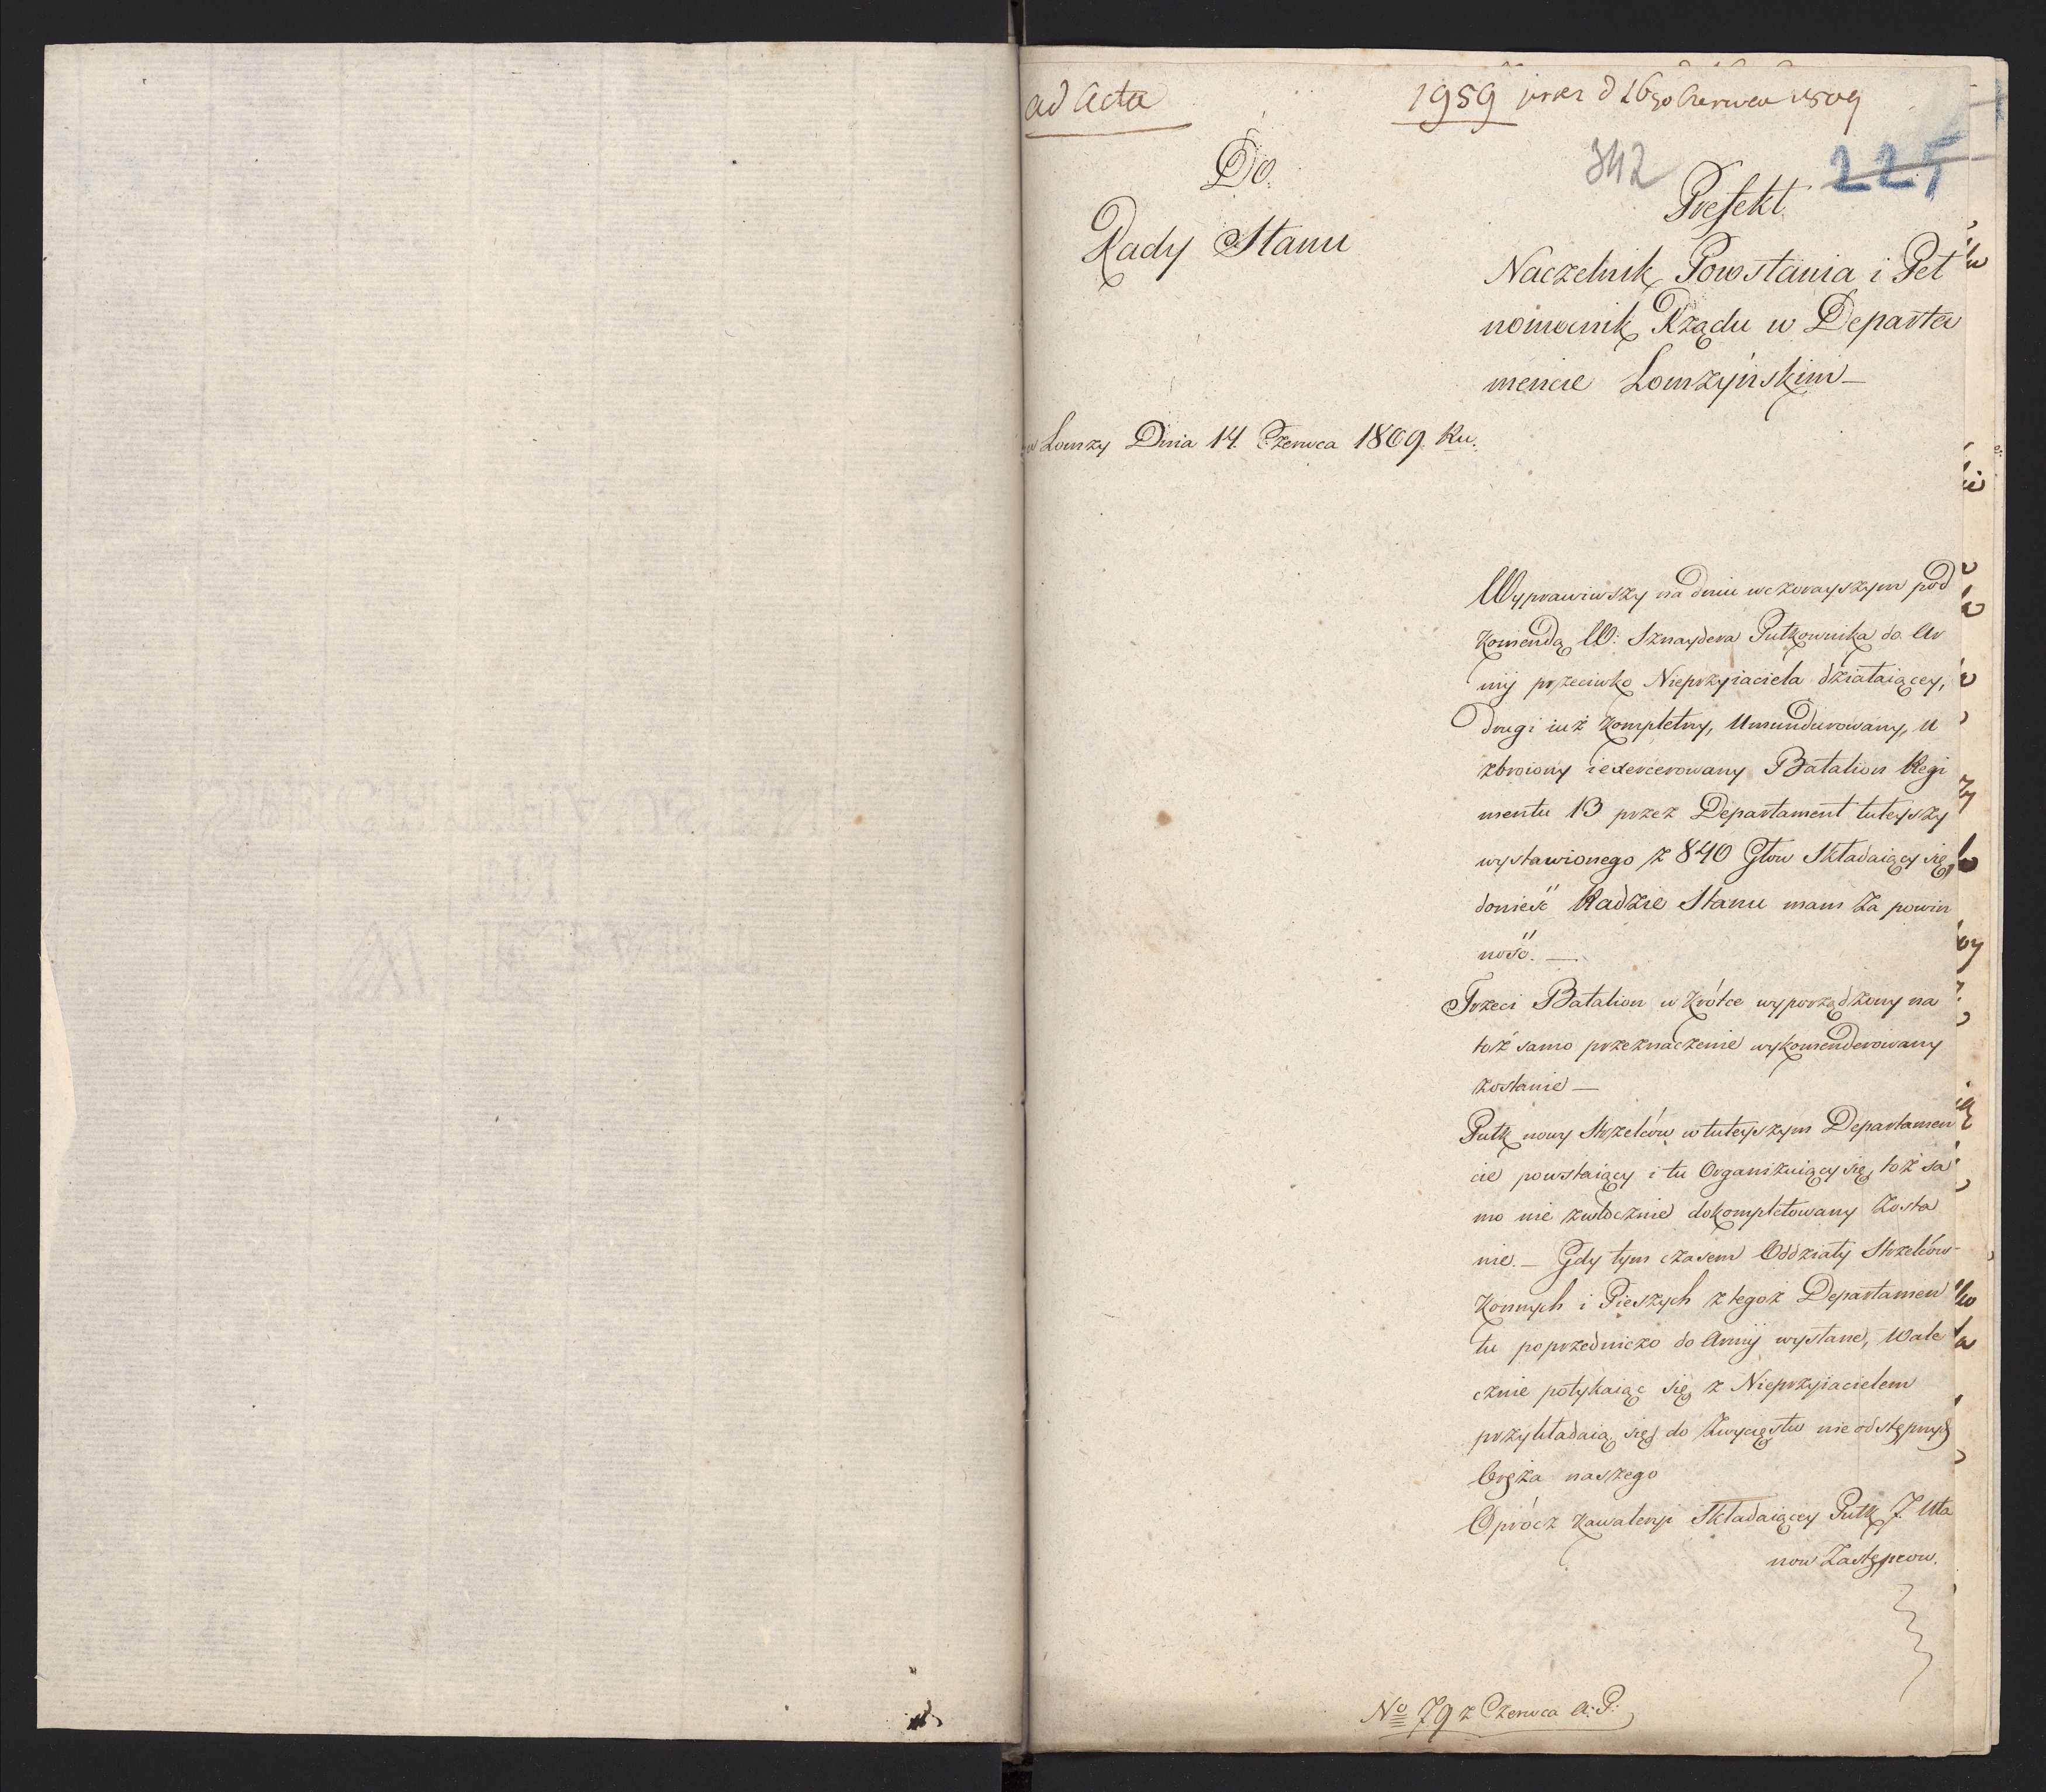 ad Acta
1959 prez d 16go Czerwca 1809
342
225
Do.
Rady Stanu
Prefekt
Naczelnik Powstania i Peł
nomocnik Rządu w Departa
mencie Łomżyńskim —
w Łomzy Dnia 14. Czerwca 1809. Ru.
Wyprawiwszy na dniu wczorayszym pod
Komendą W: Sznaydera Pułkownika do Ar
mij przeciwko Nieprzyiaciela działaiącey,
drugi iuż kompletny, Umundurowany, u
zbroiony i exercerowany Batalion Regi
mentu 13 przez Departament tuteyszy
wystawionego z 840 Głow Składaiący się,
donieść Radzie Stanu mam za powin
ność. —
Trzeci Batalion w krótce wyporządzony na
toż samo przeznaczenie wykomenderowany
zostanie —
Pułk nowy Strzelców w tuteyszym Departamen
cie powstaiący i tu Organizuiący się, toż sa
mo nie zwłocznie dokompletowany Zosta
nie. — Gdy tym czasem Oddziały Strzelców
Konnych i Pieszych z tegoż Departamen
tu poprzedniczo do Armij wysłane, Wale
cznie potykaiąc się z Nieprzyiacielem
przykładaią się do Zwycięstw nieodstępnych
Oręża naszego
Oprócz Kawaleryi Składaiącey Pułk 7. Uła
now Zastępcow.
No 79 z Czerwca A: P: